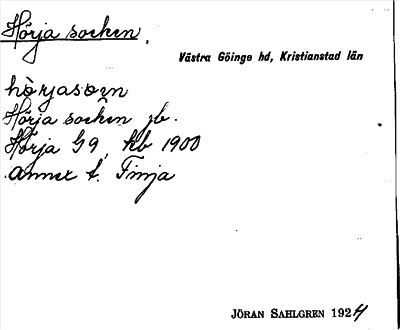 Hörja socken.
Västra Göinge hd, Kristianstad län
hòrjasoen
Hörja socken jb.
Hörja G9, kb 1900
annex t. Finja
JÖRAN SAHLGREN 1924